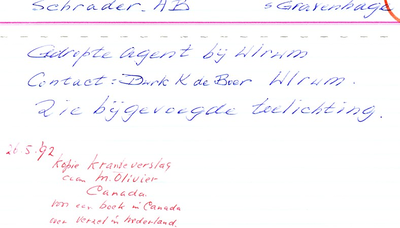 Schrader. AB s Gravenhage
Gedropte Agent bij Ulrum
Contact: Durk K de Boer Ulrum.
Zie bijgevoegde toelichting.
26.5.92
Kopie Kransverslag
aan M. Olivier
Canada.
voor een boek in Canada
over Verzet in Nederland.